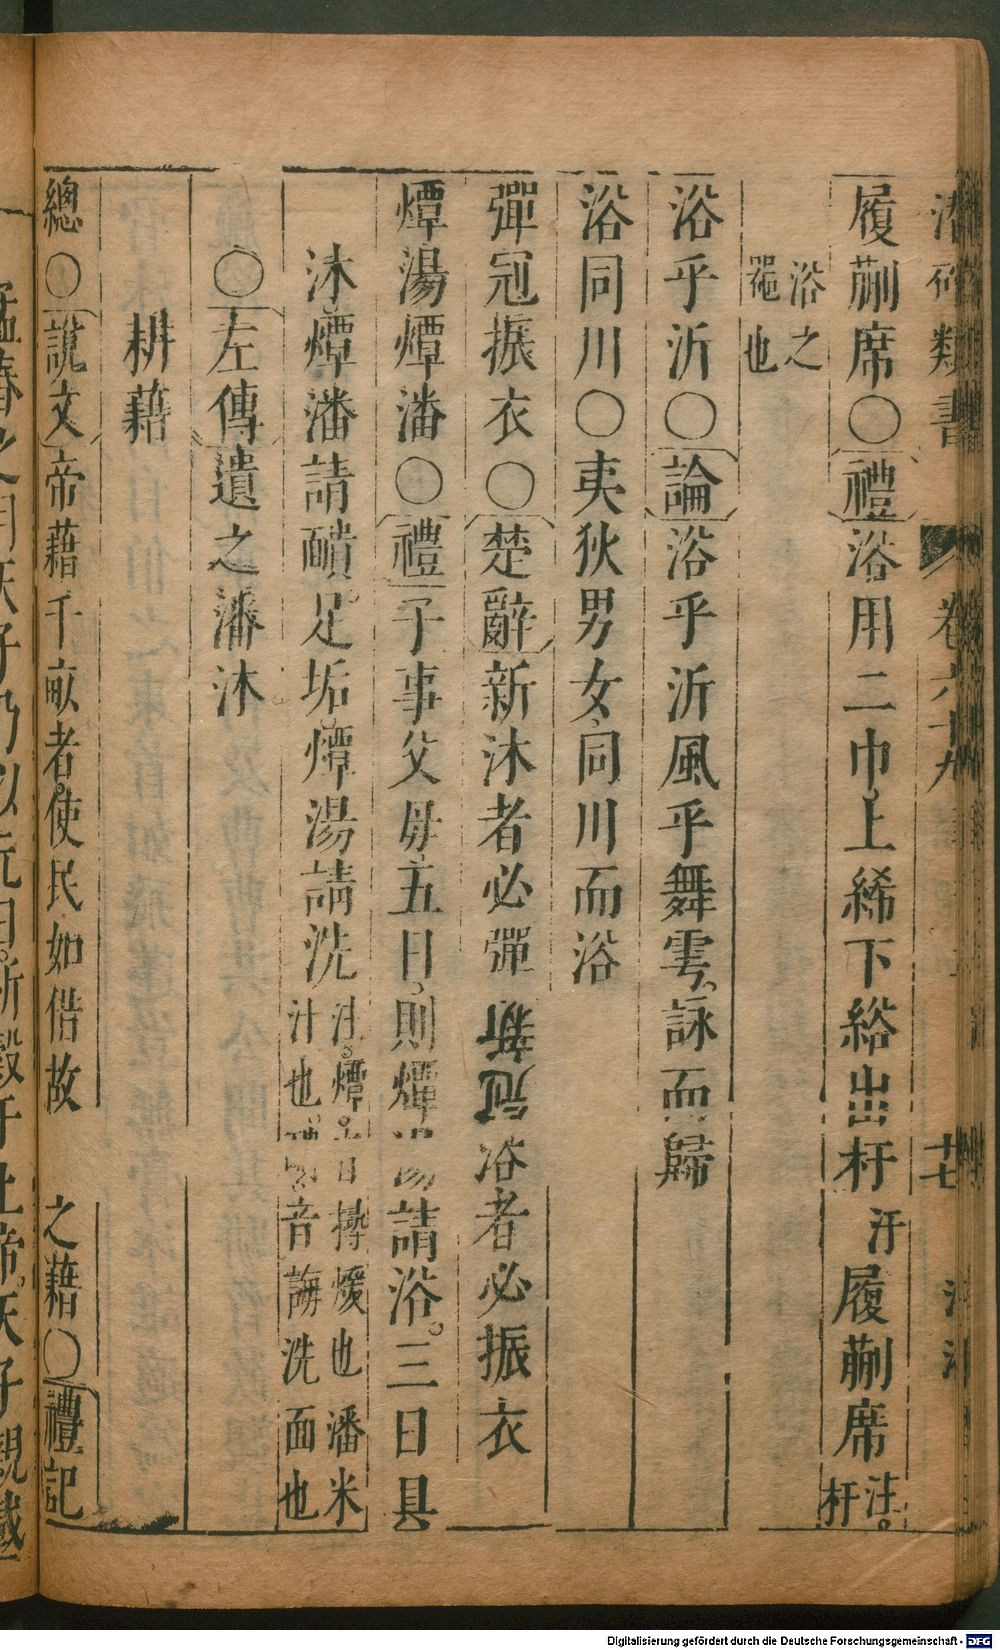 潛確類書
卷六十九
十七
履蒯席〇禮浴用二巾上絺下綌出杅汙履蒯席注杅
浴之
噐也
浴乎沂〇論浴乎沂風乎舞雩詠而歸
浴同川〇夷狄男女同川而浴
彈冠振衣〇楚辭新沐者必彈冠新浴者必振衣
燂湯燂潘〇禮子事父母五日則燂湯請浴三日具
沐燂潘請靧足垢燂湯請洗注燂音撏煖也潘米
汁也靧音誨洗面也
〇左傳遺之潘沐
耕藉
總〇說文帝藉千畝者使民如借故之藉〇禮記
孟春之月天子乃以元日祈穀于上帝天子親載
Digitalisierung gefördert durch die Deutsche Forschungsgemeinschaft - DFG